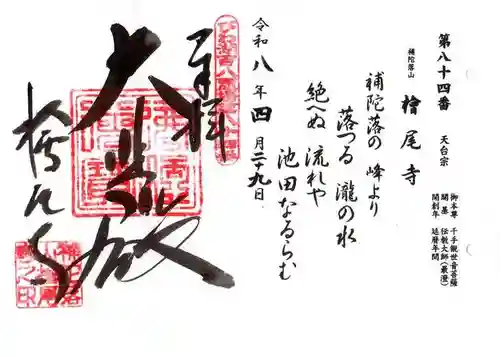 第八十四番 天台宗
補陀落山 檜尾寺
御本尊 千手観世音菩薩
開基 伝教大師(最澄)
開創年 延暦年間
補陀落の 峰より
落つる 瀧の水
絶へぬ 流れや
池田なるらむ
令和八年四月二十九日
奉拝
大悲殿
檜尾寺